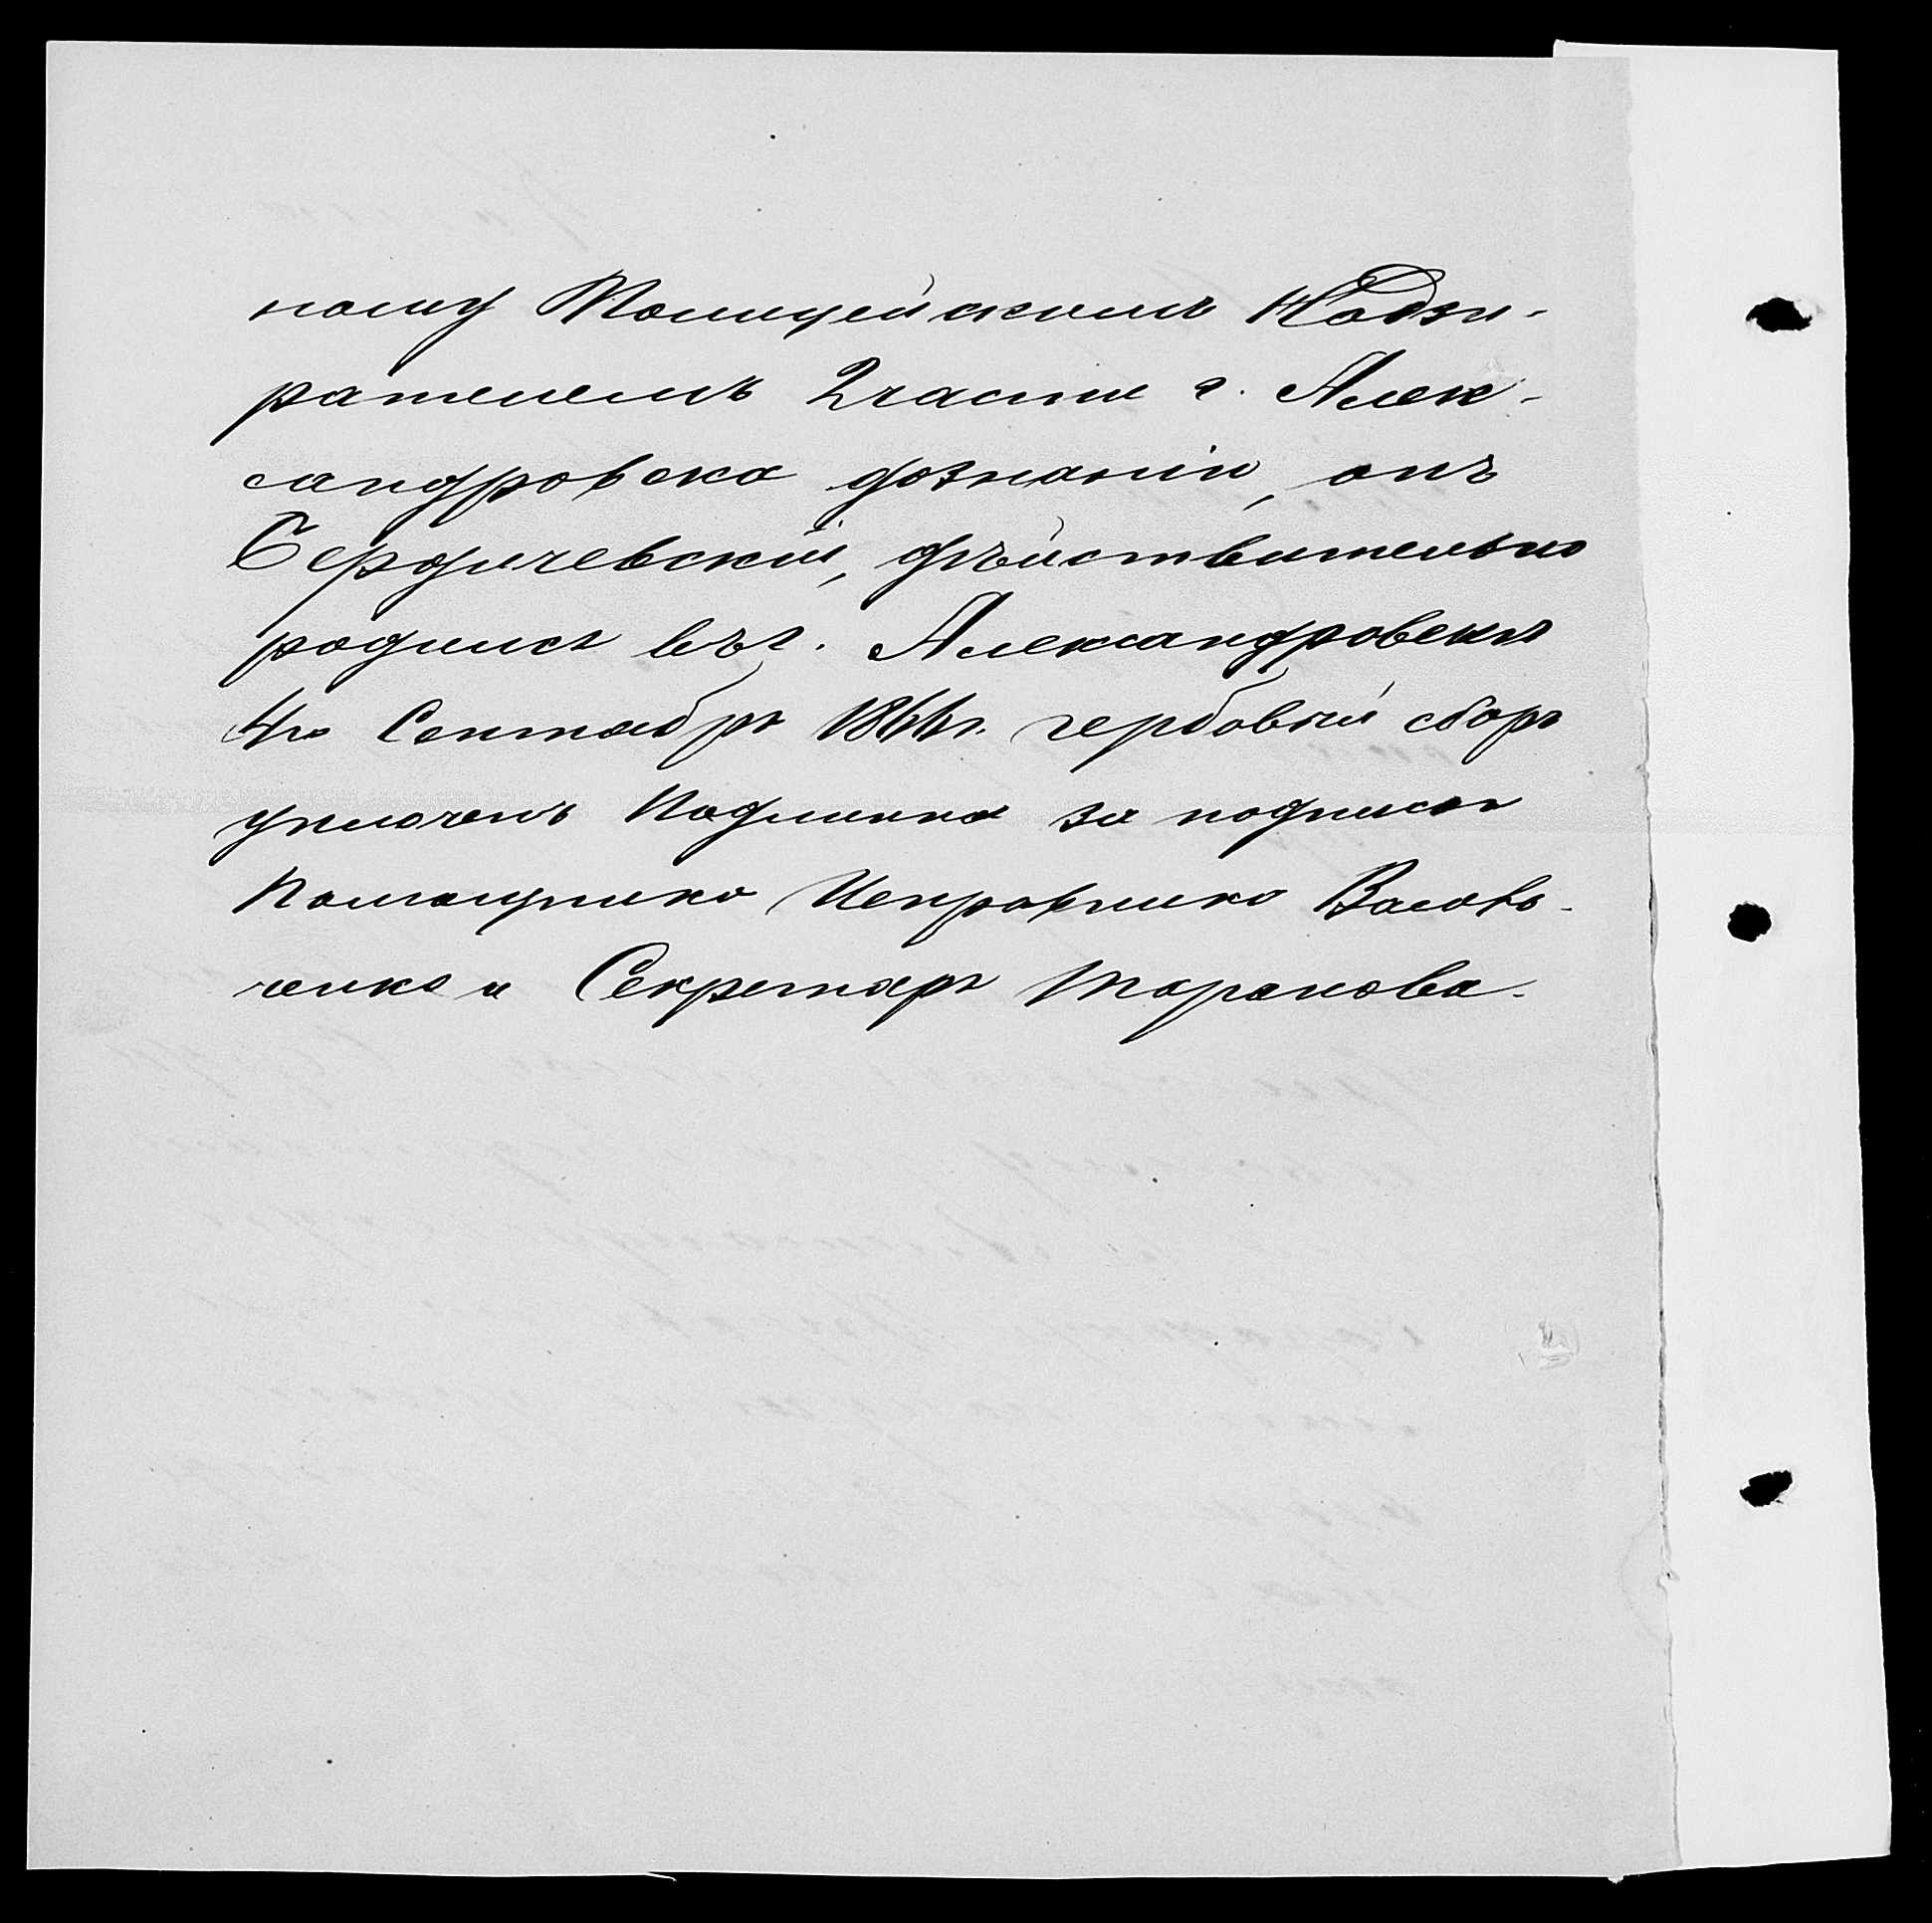 ному Полицейскимъ Надзи-
рателемъ 2 части г. Алек-
сандровска дознанію, онъ
Бердичевскій, дѣйствительно
родился въ г. Александровскѣ
4го Сентября 1866г. гербовый сборъ
уплоченъ Подлинное за подписомъ
Помощника Исправника Василь-
ченко и Секретаря Таранова.